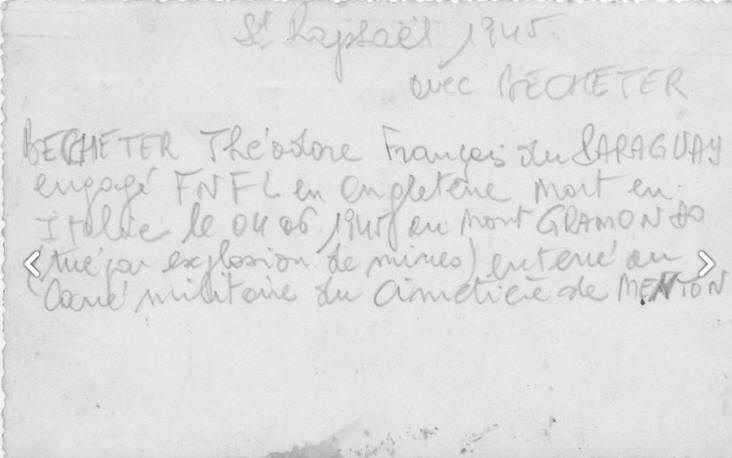 St Raphaël 1945
avec BECHETER
BECHETER Théodore Français du PARAGUAY
engagé FNFL en Angleterre mort en
Italie le 04 06 1945 au Mont GRAMONDO
(tué par explosion de mines) enterré au
Carré militaire du Cimetière de MENTON